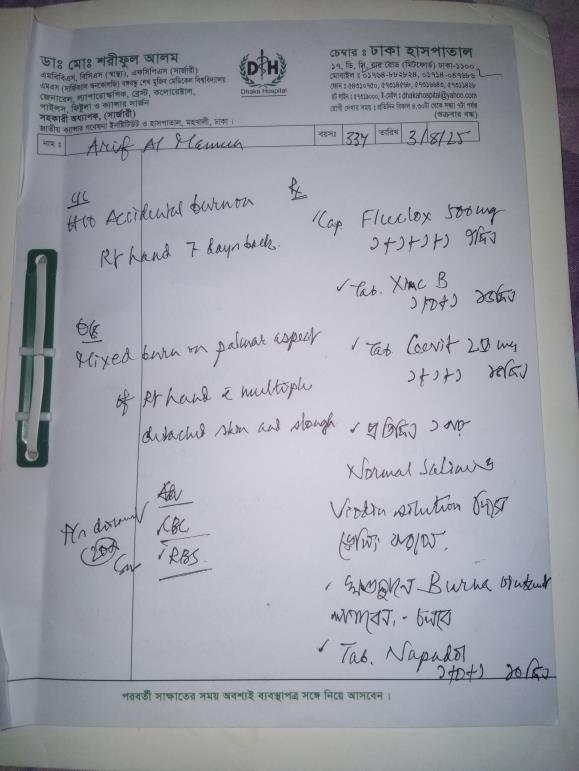 ডাঃ মোঃ শরীফুল আলম
এমবিবিএস, বিসিএস (স্বাস্থ্য), এফসিপিএস (সার্জারী)
এমএস (সার্জিকাল অনকোলজি) বঙ্গবন্ধু শেখ মুজিব মেডিকেল বিশ্ববিদ্যালয়
জেনারেল, ল্যাপারোস্কপিক, ব্রেস্ট, কলোরেক্টাল,
পাইলস, ফিস্টুলা ও ক্যান্সার সার্জন
সহকারী অধ্যাপক, (সার্জারী)
জাতীয় ক্যান্সার গবেষনা ইনষ্টিটিউট ও হাসপাতাল, মহাখালী, ঢাকা।
DH
Dhaka Hospital
চেম্বার : ঢাকা হাসপাতাল
১৭, ডি, সি, রায় রোড (মিটফোর্ড) ঢাকা-১১০০
মোবাইল :
ফোন :
ই-মেইল : dhakahospital@yahoo.com
রোগী দেখার সময় : প্রতিদিন বিকাল ৪.০০টা থেকে সন্ধ্যা ৭টা পর্যন্ত
(শুক্রবার বন্ধ)
নাম : Arif Al Mamun বয়সঃ 33y তারিখ 3/8/25
H/O Accidental burn on
Rt hand 7 days back.
O/E
Mixed burn on palmar aspect
of Rt hand c multiple
detached skin and slough
Adv
CBC
RBS
Rx
Cap. Fluclox 500mg
১+১+১+১ ৭দিন
Tab. Xinc B
১+০+১ ১৫দিন
Tab. Ceevit 250 mg
১+১+১ ১৫দিন
প্রতিদিন ১ বার
Normal Saline ও
Viodin solution দিয়ে
ড্রেসিং করবেন.
ক্ষতস্থানে Burna ointment
লাগাবেন - চলবে
Tab. Napadol
১+১+১ ১০দিন
পরবর্তী সাক্ষাতের সময় অবশ্যই ব্যবস্থাপত্র সঙ্গে নিয়ে আসবেন।